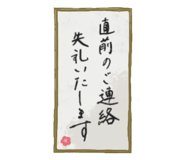 直前のご連絡
失礼いたします